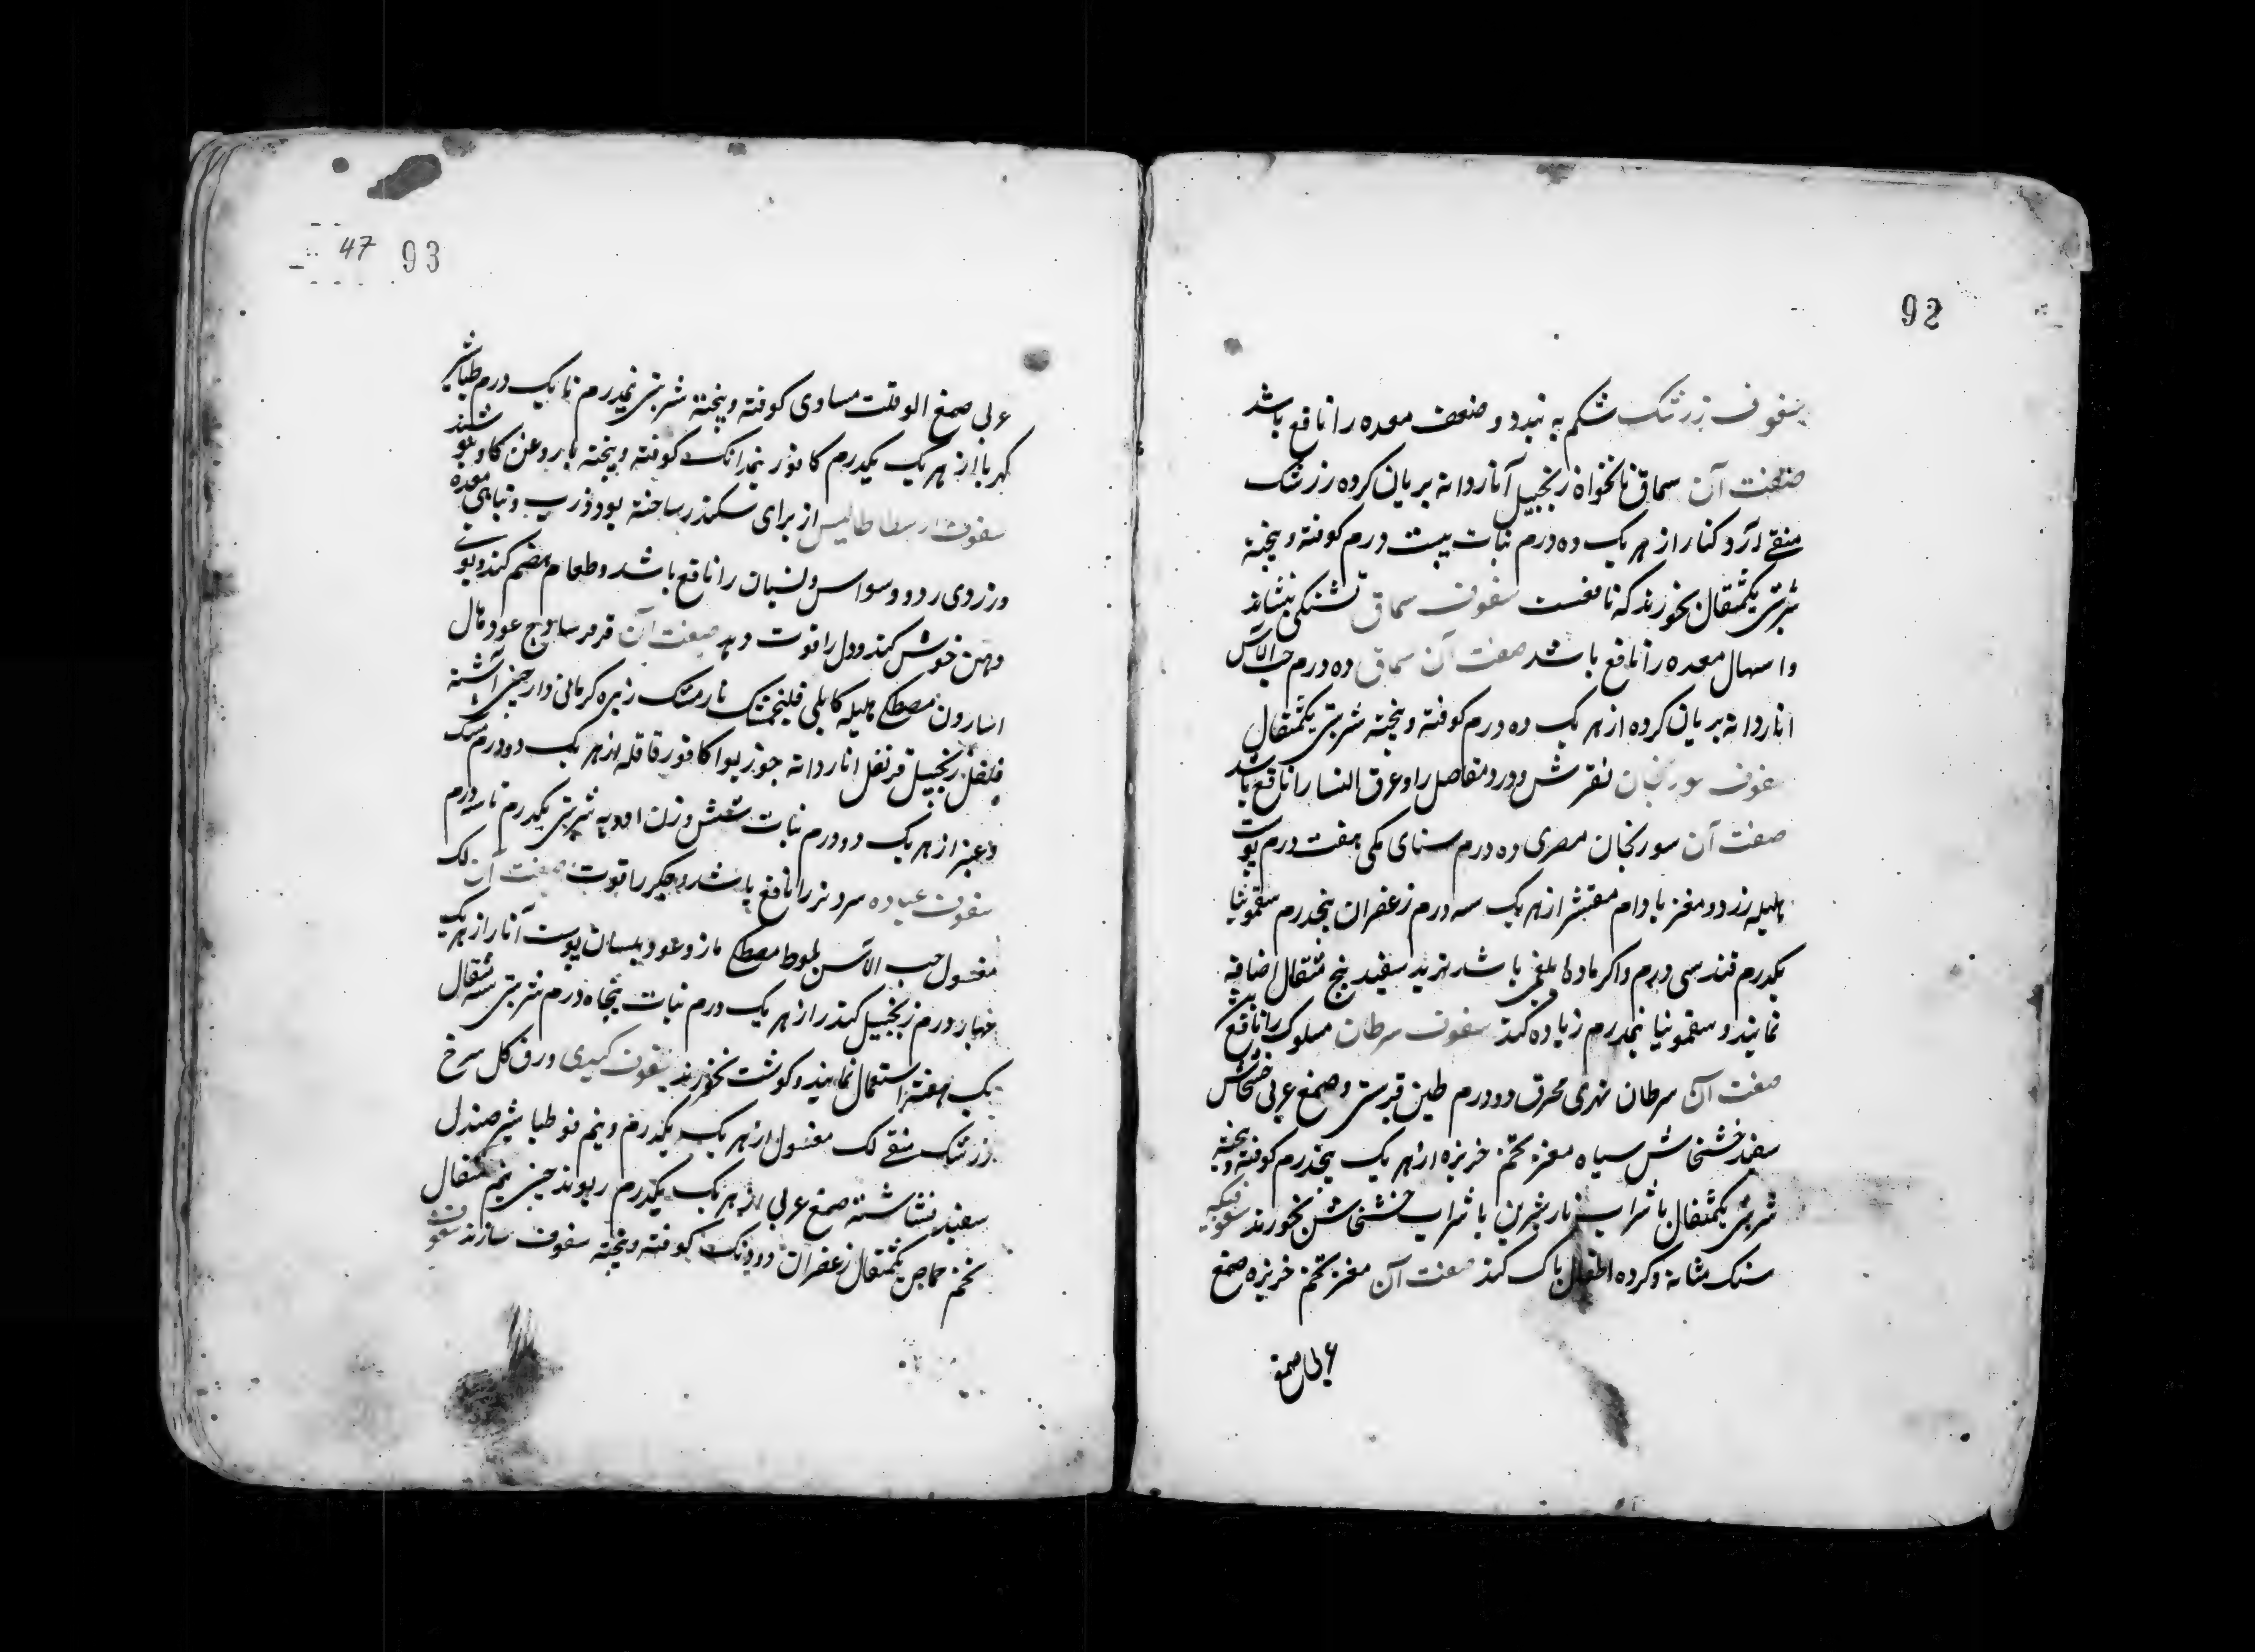 92
سفوف زرشک شکم به بندد و ضعف معده را نافع باشد
صفت آن سماق نانخواه زنجبیل آناردانه بریان کرده زرشک
منقے آرد کنار از هریک ده درم نبات بیست درم کوفته و بیخته
شربتی یکمثقال بخورند که نافعست سفوف سماق تشنکی بنشاند
واسهال معده را نافع باشد صفت آن سماق ده درم حب الآس
اناردانه بریان کرده از هریک ده درم کوفته و بیخته شربتی یکمثقال
سفوف سورنجان نقرس و درد مفاصل را و عرق النسا را نافع باشد
صفت آن سورنجان مصری ده درم سنای مکی هفت درم پوست
هلیله زرد و مغز بادام مقشر از هریک سه درم زعفران پنجدرم سقمونیا
یکدرم قند سی درم و اکر ماده بلغمی باشد تربد سفید پنج مثقال اضافه
نمایند و سقمونیا نیمدرم زیاده کند سفوف سرطان مسلول را نافع
صفت آن سرطان نهری محرق دو درم طین قبرسی و صمغ عربی خشخاش
سفید خشخاش سیاه مغز تخم خربزه از هریک پنجدرم کوفته و بیخته
شربتی یکمثقال با شراب نار شیرین یا شراب خشخاش بخورند سفوفیکه
سنک مثانه و کرده اطفال پاک کند صفت آن مغز تخم خربزه صمغ
عربی صمغ
47 93
عربی صمغ الو قلت مساوی کوفته و بیخته شربتی نیمدرم تا یک درم طباشیر
کهربا از هریک یکدرم کافور نیمدانک کوفته و بیخته با روغن کاو
سفوف ارسطاطالیس از برای سکندر ساخته بود و تباهی معده
و زردی رو و وسواس و نسیان را نافع باشد و طعام هضم کند و بوی
دهن خوش کند و دل را قوت دهد صفت آن ساذج عود
اسارون مصطکے هلیله کابلی فلنجمشک نارمشک زیره کرمانی دارچینی اشنه
فلفل زنجبیل قرنفل اناردانه جوزبوا کافور قاقله از هریک دو درم مشک
و عنبر از هریک دو درم نبات شش وزن ادویه شربتی یکدرم تا سه درم
سفوف سرد تر را نافع باشد و جکر را قوت صفت آن لک
مغسول حب الآس بلوط مصطکے مازو عود بلسان پوست آنار از هریک
چهار درم زنجبیل کندر از هریک درم نبات پنجاه درم شربتی سه مثقال
یک هفته استعمال نمایند و کوشت نخورند سفوف کبدی ورق کل سرخ
زرشک منقے لک مغسول از هریک یکدرم و نیم طباشیر صندل
سفید نشاسته صمغ عربی از هریک یکدرم ریوند چینی نیم مثقال
تخم حماض یکمثقال زعفران دو دانک کوفته و بیخته سفوف سازند سفوف